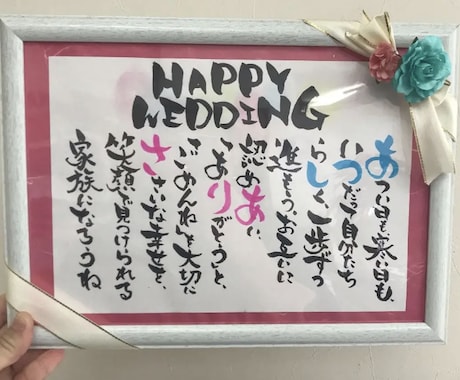 HAPPY
WEDDING
あつい日も、寒い日も、
いつだって自分たち
らしく、一歩ずつ
進もう。お互いに
認めあい、
「ありがとう」と、
「ごめんね」を大切に
ささいな幸せを、
笑顔で見つけられる
家族になろうね